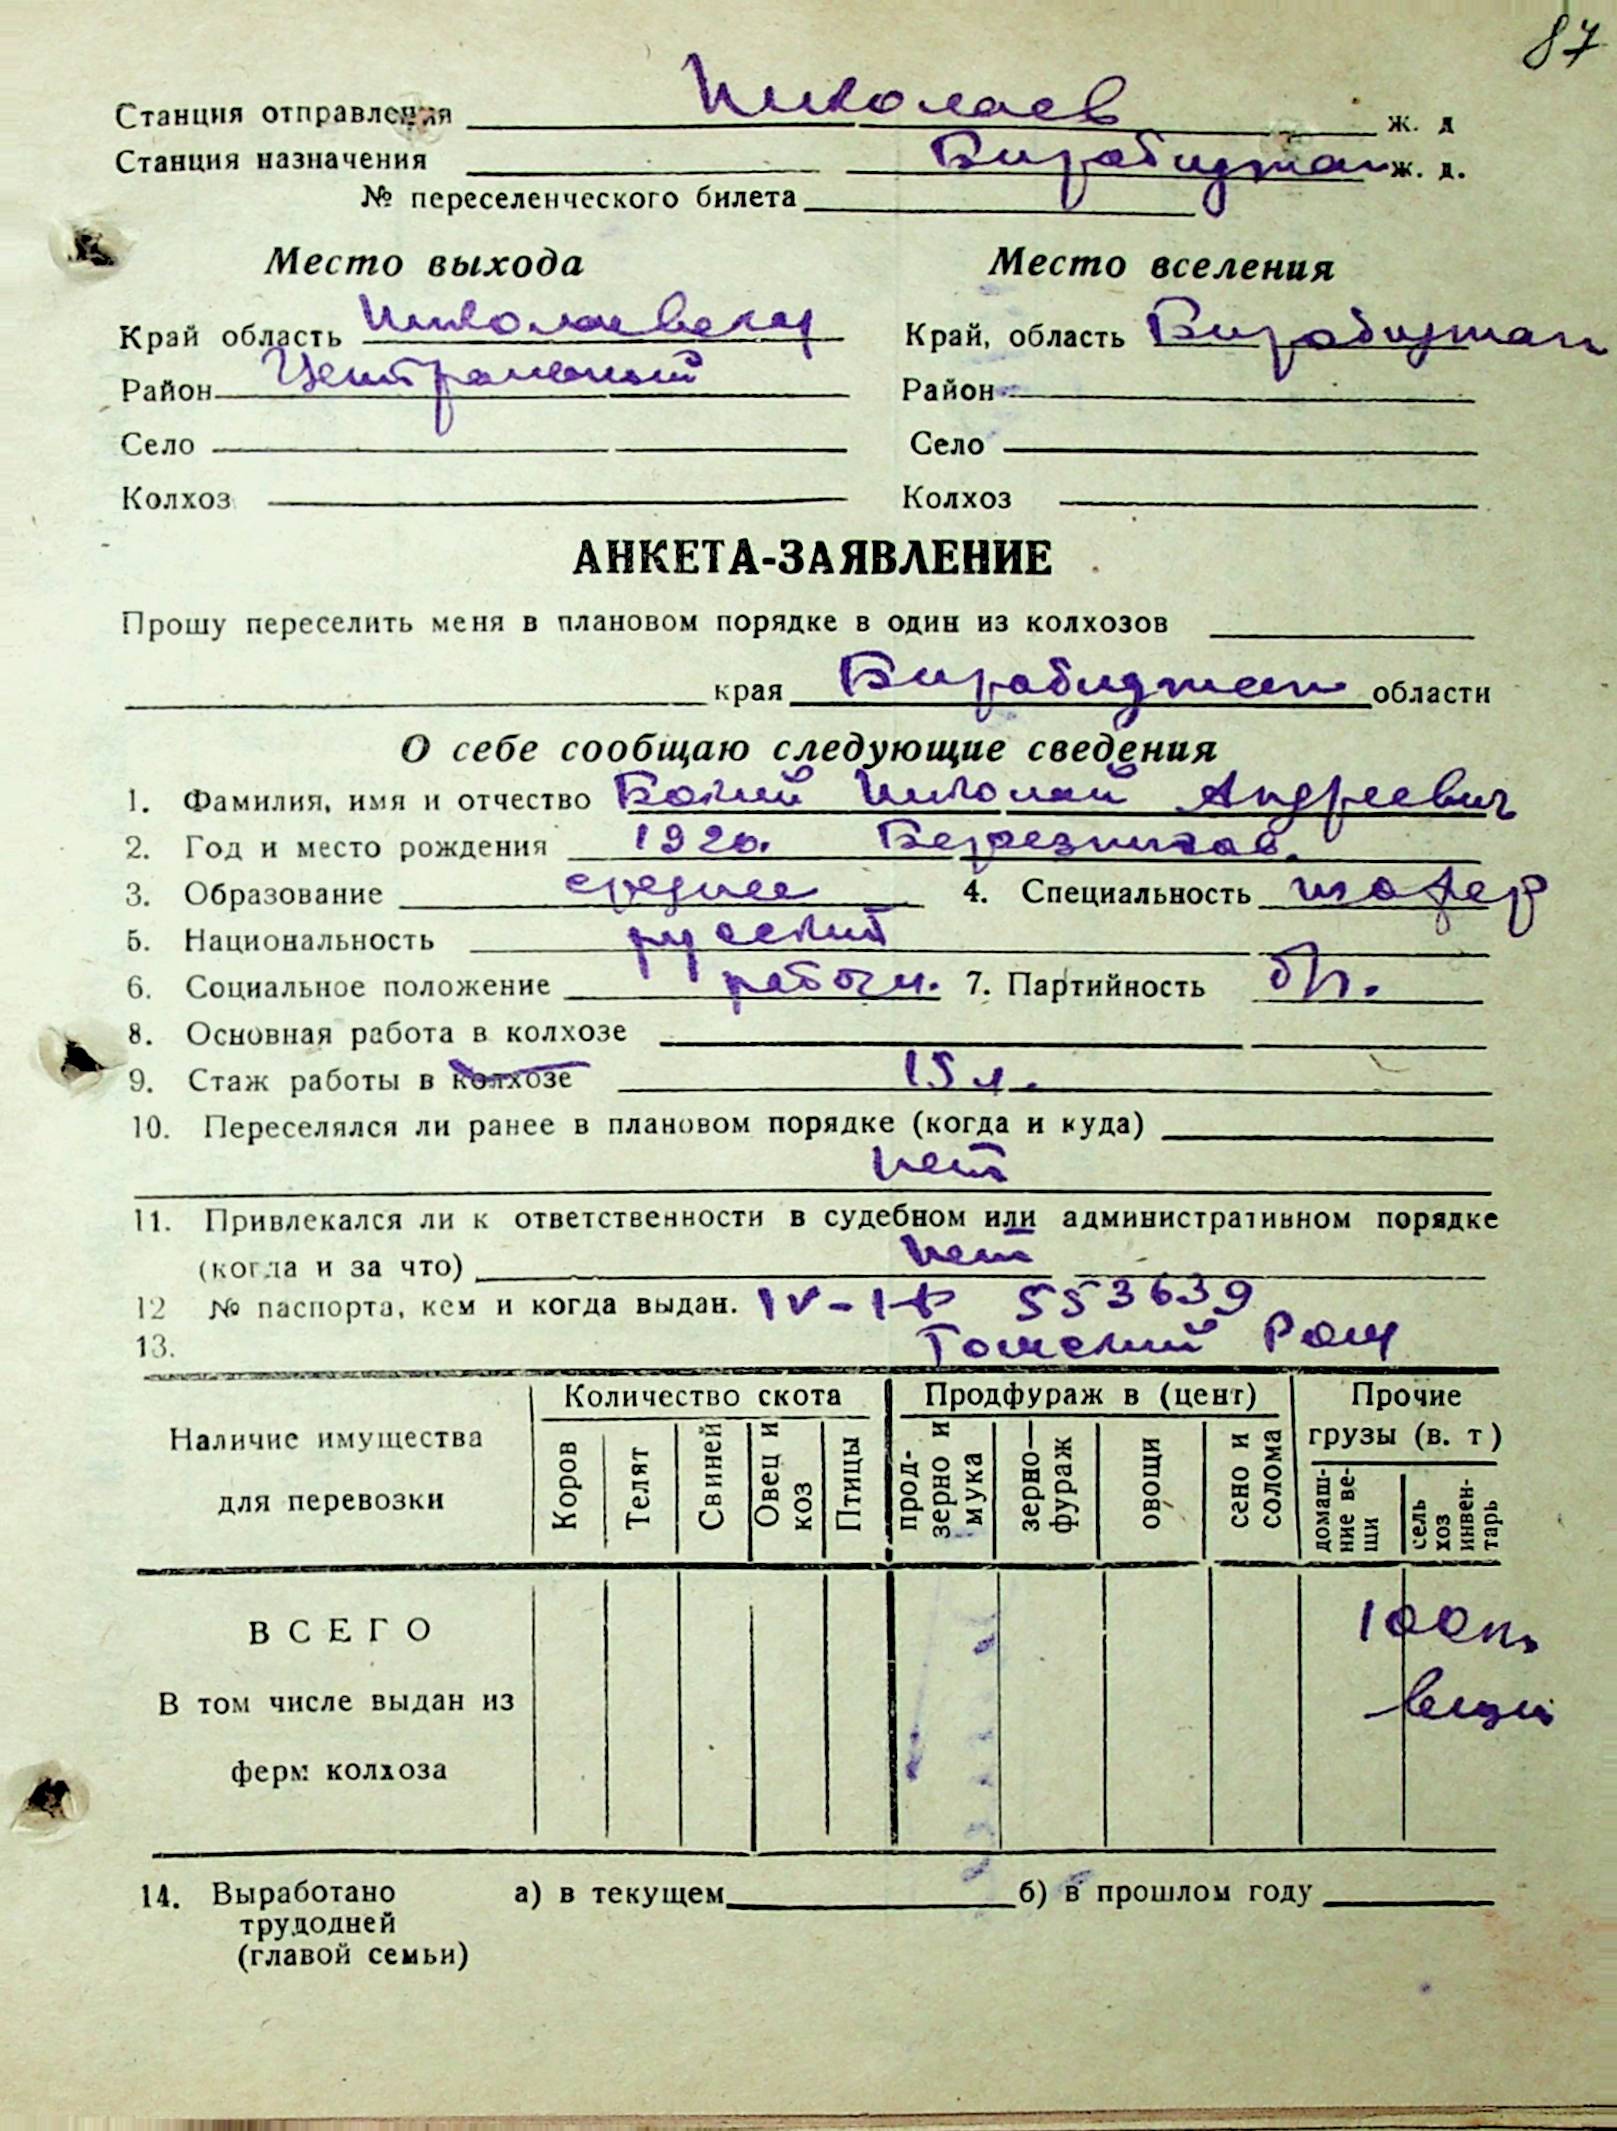 87
Станция отправления Николаев ж. д
Станция назначения Биробиджан ж. д.
№ переселенческого билета
Место выхода Место вселения
Край область Николаевская Край, область Биробиджан
Район Центральный Район
Село Село
Колхоз Колхоз
АНКЕТА-ЗАЯВЛЕНИЕ
Прошу переселить меня в плановом порядке в один из колхозов
края Биробиджан области
О себе сообщаю следующие сведения
1. Фамилия, имя и отчество Николай Андреевич
2. Год и место рождения 1920.
3. Образование среднее 4. Специальность шофер
5. Национальность русский
6. Социальное положение рабочи. 7. Партийность б/п.
8. Основная работа в колхозе
9. Стаж работы в колхозе 15 л.
10. Переселялся ли ранее в плановом порядке (когда и куда)
нет
11. Привлекался ли к ответственности в судебном или административном порядке
(когда и за что) нет
12 № паспорта, кем и когда выдан. 553639
13.
Наличие имущества для перевозки
Количество скота Продфураж в (цент) Прочие грузы (в. т)
Коров Телят Свиней Овец и коз Птицы прод-зерно и мука зерно—фураж овощи сено и солома домаш-ние ве-щи сель хоз инвен-тарь
ВСЕГО 100
В том числе выдан из вещи
ферм колхоза
14. Выработано а) в текущем б) в прошлом году
трудодней
(главой семьи)